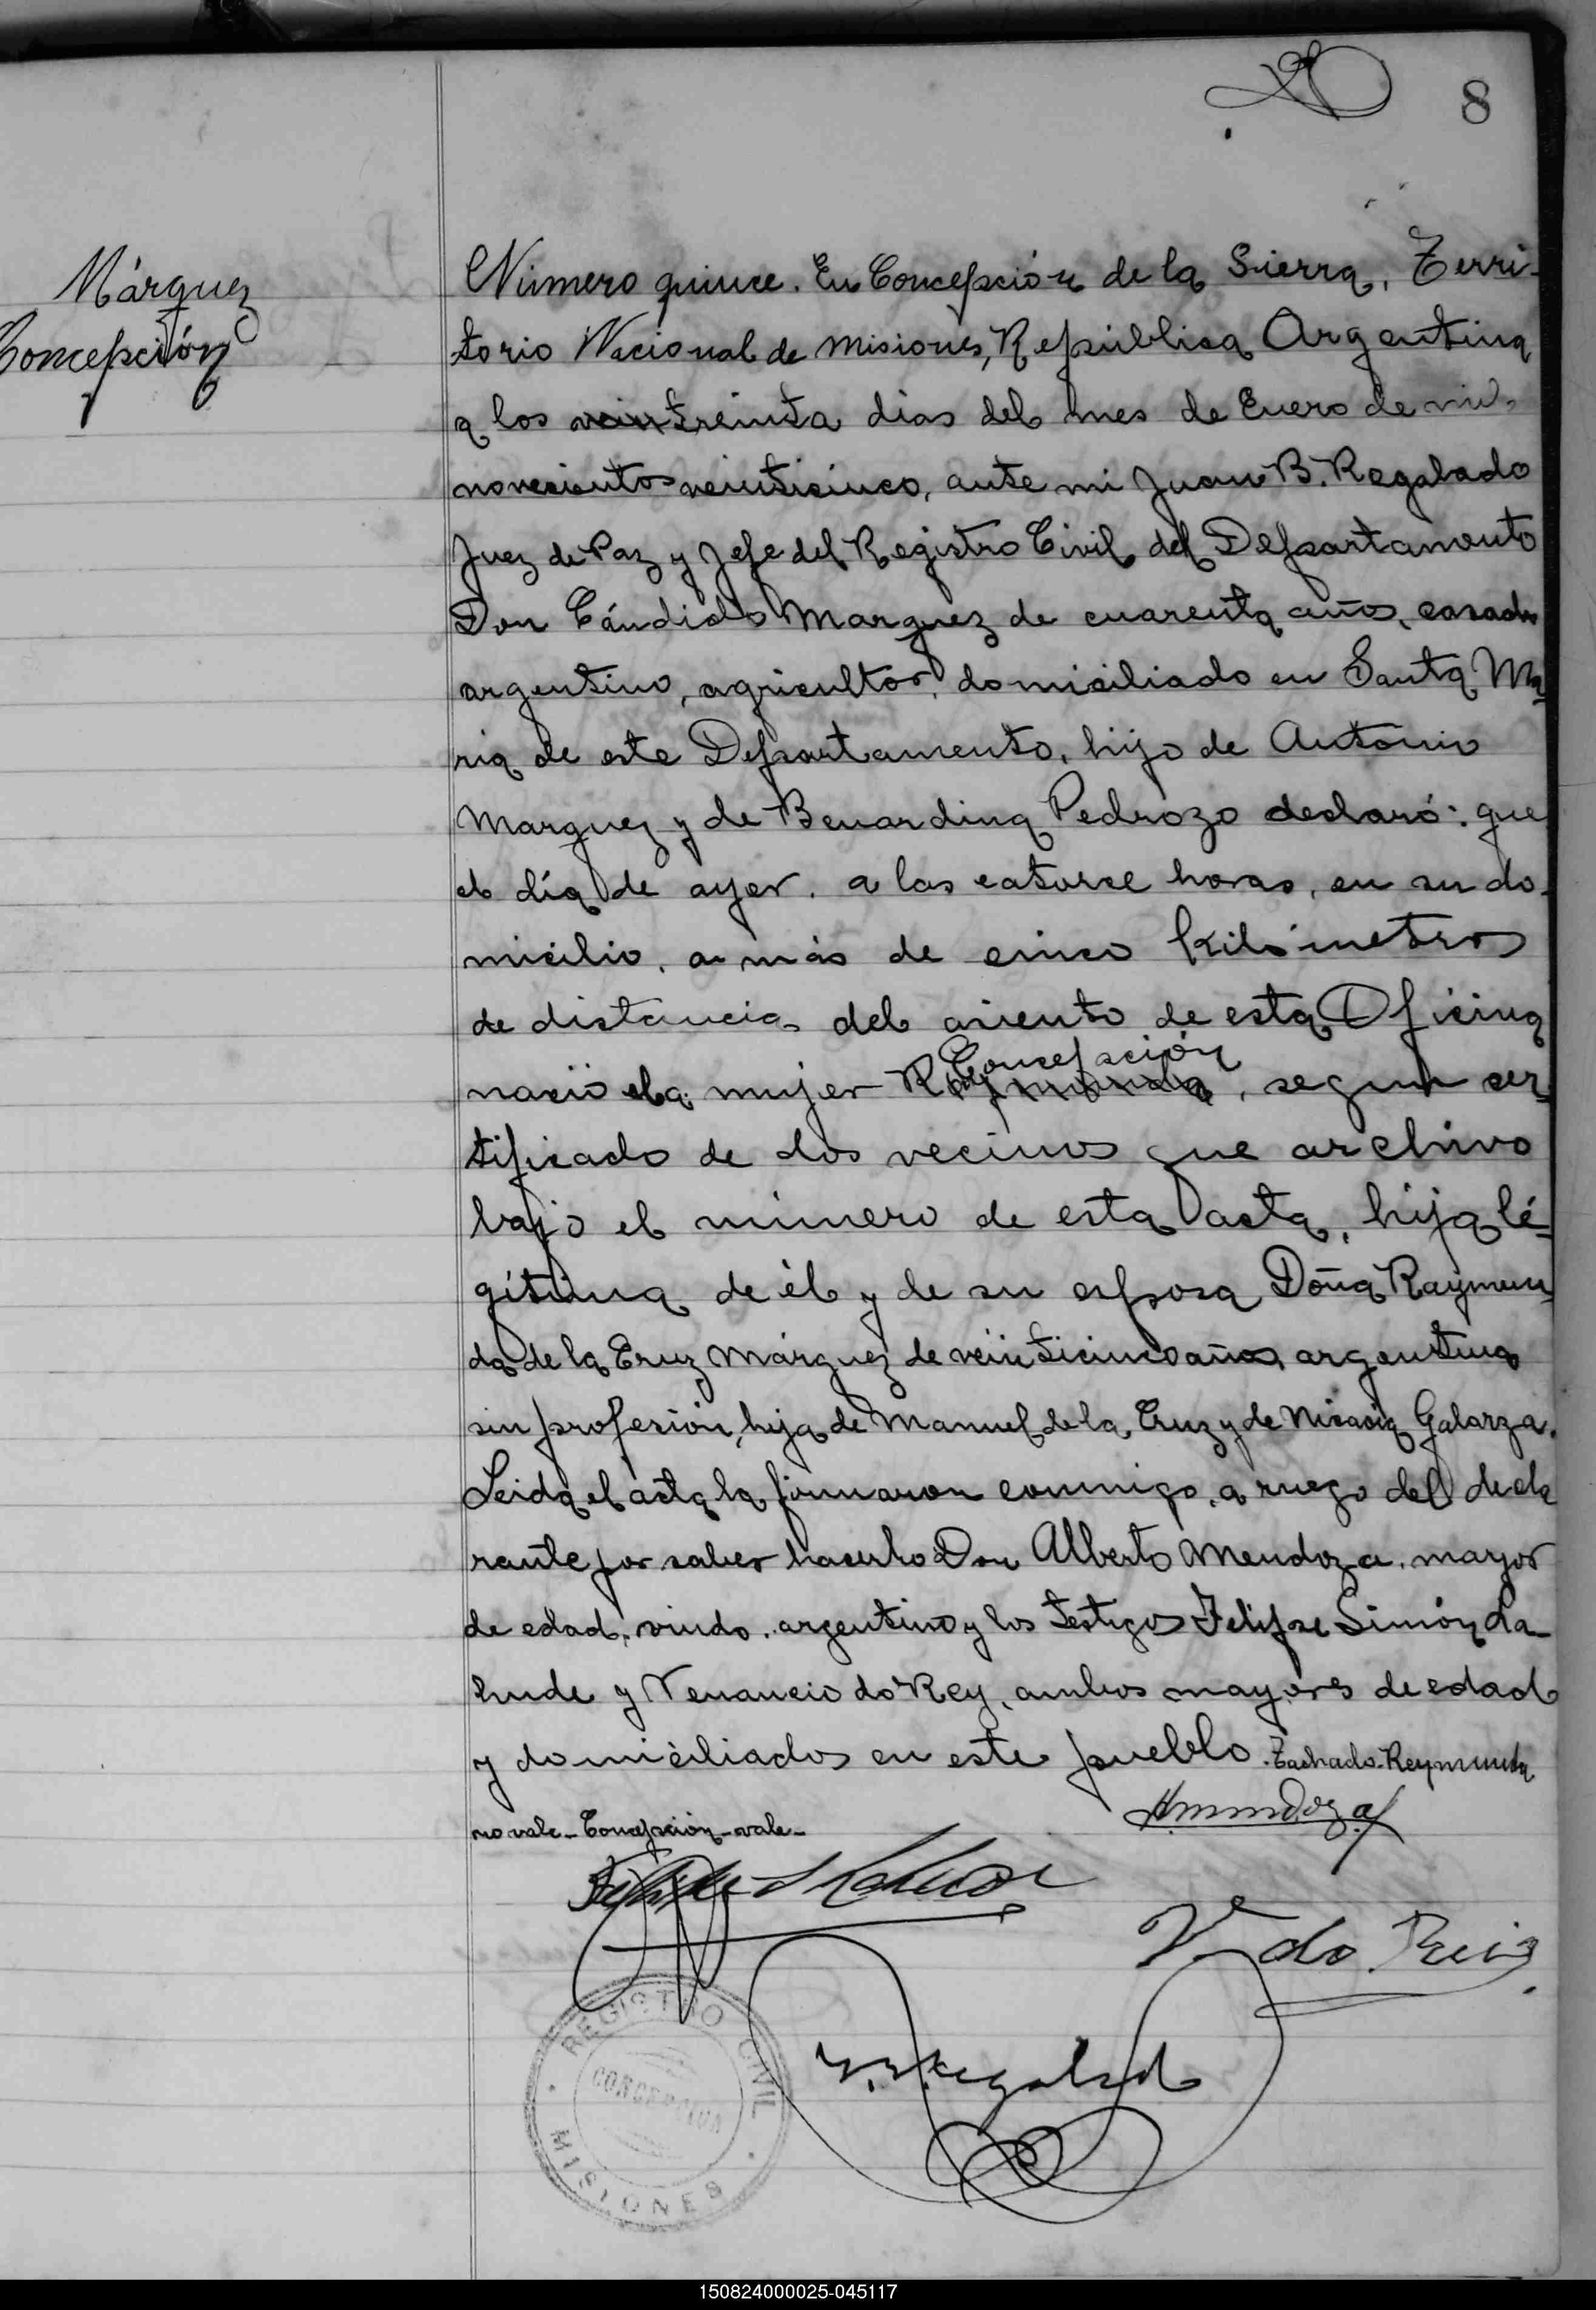 8
Márquez
Concepción
Número quince. En Concepción de la Sierra, Terri-
torio Nacional de Misiones, República Argentina
a los treinta dias del mes de Enero de mil
novecientos veinticinco, ante mi Juan B. Regalado
Juez de Paz y Jefe del Registro Civil del Departamento
Don Cándido Marquez de cuarenta años, casado
argentino, agricultor, domiciliado en Santa Ma-
ria de este Departamento, hijo de Antonio
Marquez y de Benardina Pedrozo declaró: que
el día de ayer, a las catorce horas, en su do-
micilio, a más de cinco kilómetros
de distancia del asiento de esta Oficina
Concepción
nació la mujer Raymunda, segun cer-
tificado de dos vecinos que archivo
bajo el número de esta acta, hija lé-
gítima de él y de su esposa Doña Raymun-
da de la Cruz Márquez de veinticinco años, argentina
sin profesión, hija de Manuel de la Cruz y de Nicasia Galarza.
Leida el acta la firmaron conmigo, a ruego del decla
rante por saber hacerlo Don Alberto Mendoza, mayor
de edad, viudo, argentino y los testigos Felipe Simón La-
hude y Venancio do Rey, ambos mayores de edad
y domiciliados en este pueblo. Tachado-Reymunda
no vale-Concepción-vale-
AMendoza
V. do Rey
J.B. Regalado
REGISTRO CIVIL
CONCEPCION
MISIONES
150824000025-045117